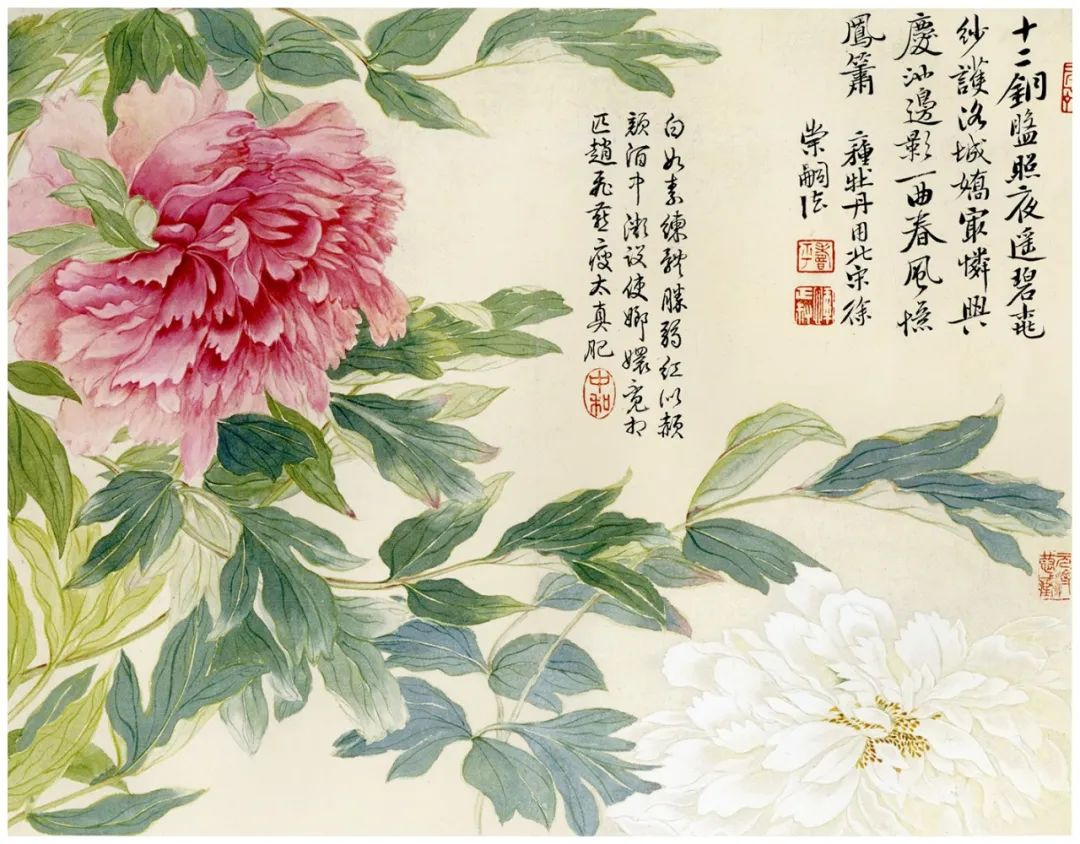 十二銅盤照夜遥碧桃
紗護洛城嬌最憐興
慶池邊影一曲春風憶
鳳簫 二種牡丹用北宋徐
崇嗣法
白如素練體勝弱紅似頳
顏酒中微設使嫏嬛竟相
匹趙飛燕瘦太真肥
中和